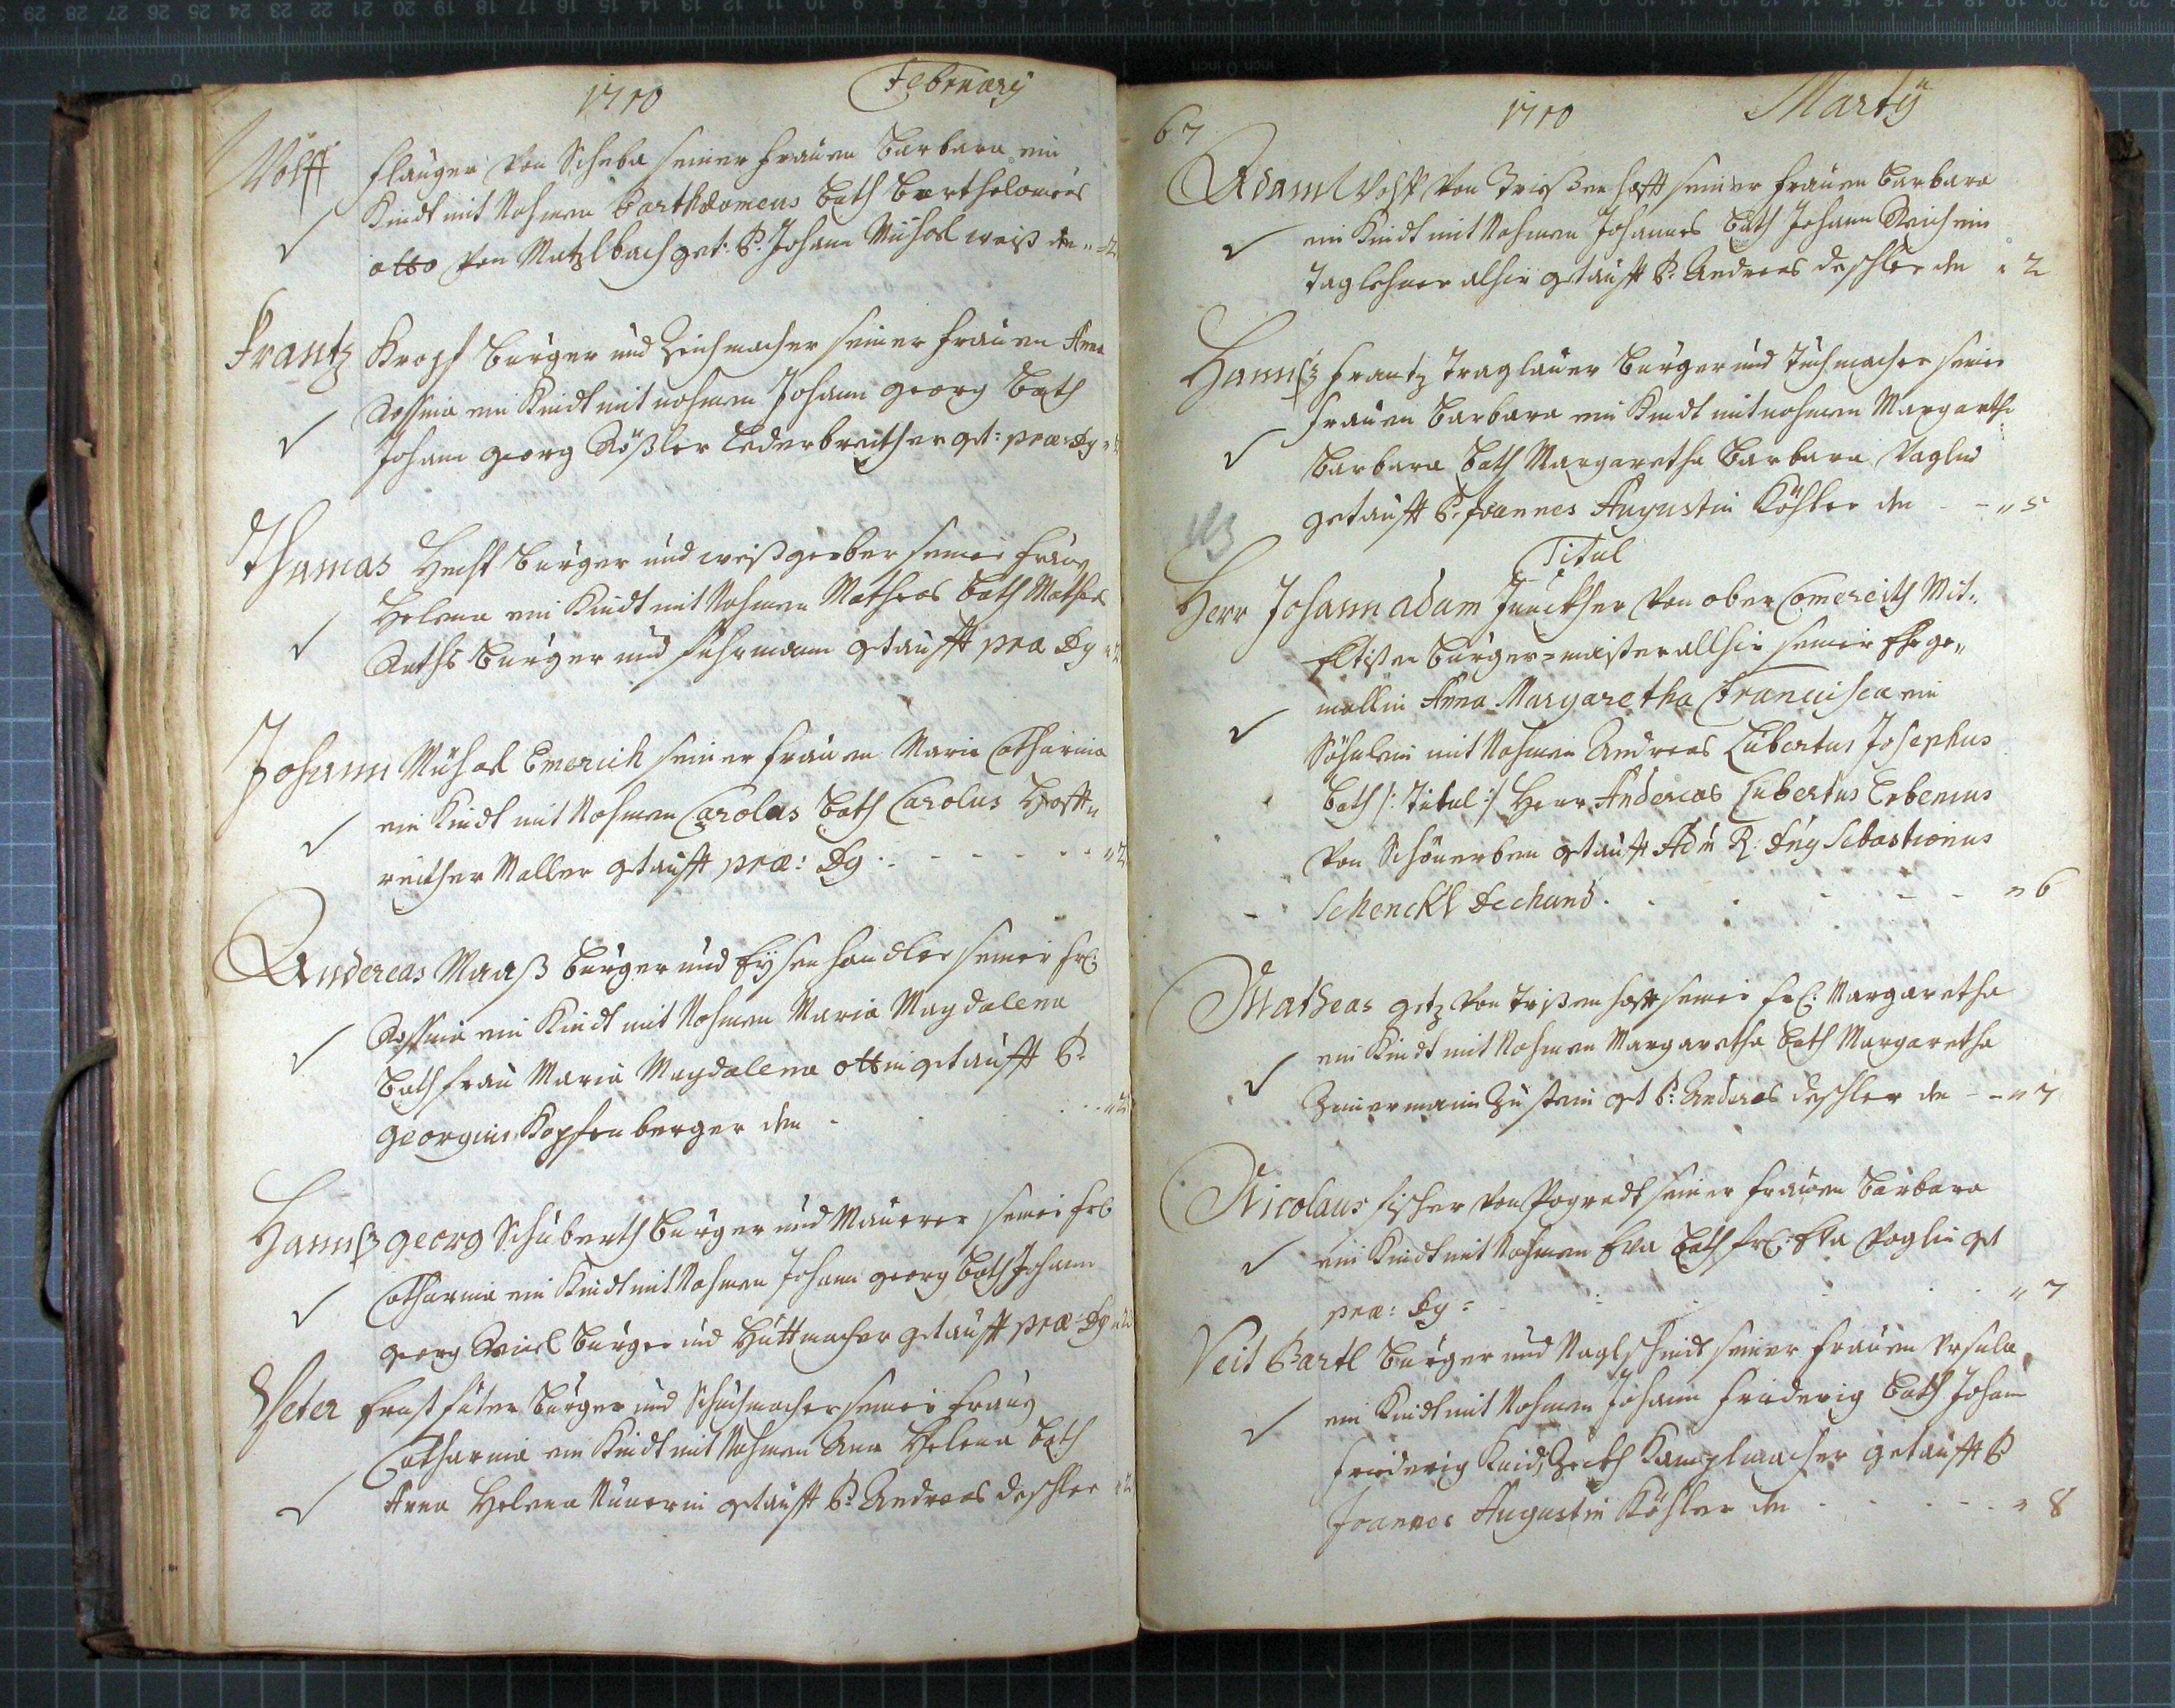 1710 February
Wolff flauger von Scheba seiner frauen Barbara ein
Kindt mit Nahmen Bartholomeus Bath Bartholomeus
otto von Matzlbach get: P: Johann Michael weiß den
Frantz Kropf Burger und Zeichmacher seiner frauen Anna
Rossina ein Kindt mit nahmen Johann georg Bath
Johann georg Rößler Lederbreither get: præ: Dg
Thamas Hecht Burger und weißgerber seiner frauen
Helena ein Kindt mit Nahmen Matheas Bath Matheas
Raths Burger und fuhrmann getaufft præ Dg
Johann Michael Emerich seiner frauen Maria Catharina
ein Kindt mit Nahmen Carolus Bath Carolus Hoff„
reither Maller getaufft præ: Dg
Andereas Maaß Burger und Eysenhandler seiner fr:
Rossina ein Kindt mit Nahmen Maria Magdalena
Bath frau Maria Magdalena ottin getaufft P:
georgius Kopfenberger den
Hannß georg Schuberth Burger und Maurer seiner fr:
Catharina ein Kindt mit Nahmen Johann georg Bath Johann
georg Burger und Huttmacher getaufft præ: Dg
Peter Ernst Burger und Schuhmacher seiner frauen
Catharina ein Kindt mit Nahmen Ana Helena Bath
Anna Helena getaufft P: Andreas deßler
67 1710 Marty
Adam Wolff von seiner frauen Barbara
ein Kindt mit Nahmen Johannes Bath Johann Reich ein
Taglehner alhir getaufft P: Andreas deßler den 2
Hannß frantz Traglauer Burger und Tuchmacher seiner
frauen Barbara ein Kindt mit nahmen Margaretha
Barbara Bath Margaretha Barbara
getaufft P: Joannes Augustin Köhler den - - „ 5
Titul
Herr Johann adam Junckher von ober Comereith Mit„
Eltisten Burger=maister allhir seiner Ehege„
mallin Anna Margaretha Francisca ein
Söhnlein mit Nahmen Andreas Lubertus Josephus
Bath /: Titul :/ Herr Andereas Lubertus Erbenius
von Schönerben getaufft Adm R: Dny Sebastianus
Schenckl Dechand. - - „ 6
Matheas getz von seiner fr: Margaretha
ein Kindt mit Nahmen Margaretha Bath Margaretha
get P: Andreas deßler den - - „ 7
Nicolaus fischer von Pogradt seiner frauen Barbara
ein Kindt mit Nahmen Eva Bath fr: Eva Voglin get
præ: Dg: „ 7
Veit Bartl Burger und Naglschmidt seiner frauen Ursula
ein Kindt mit Nahmen Johann friderig Bath Johann
friderig Kamplmacher getaufft P
Joannes Augustin Köhler den - - „ 8